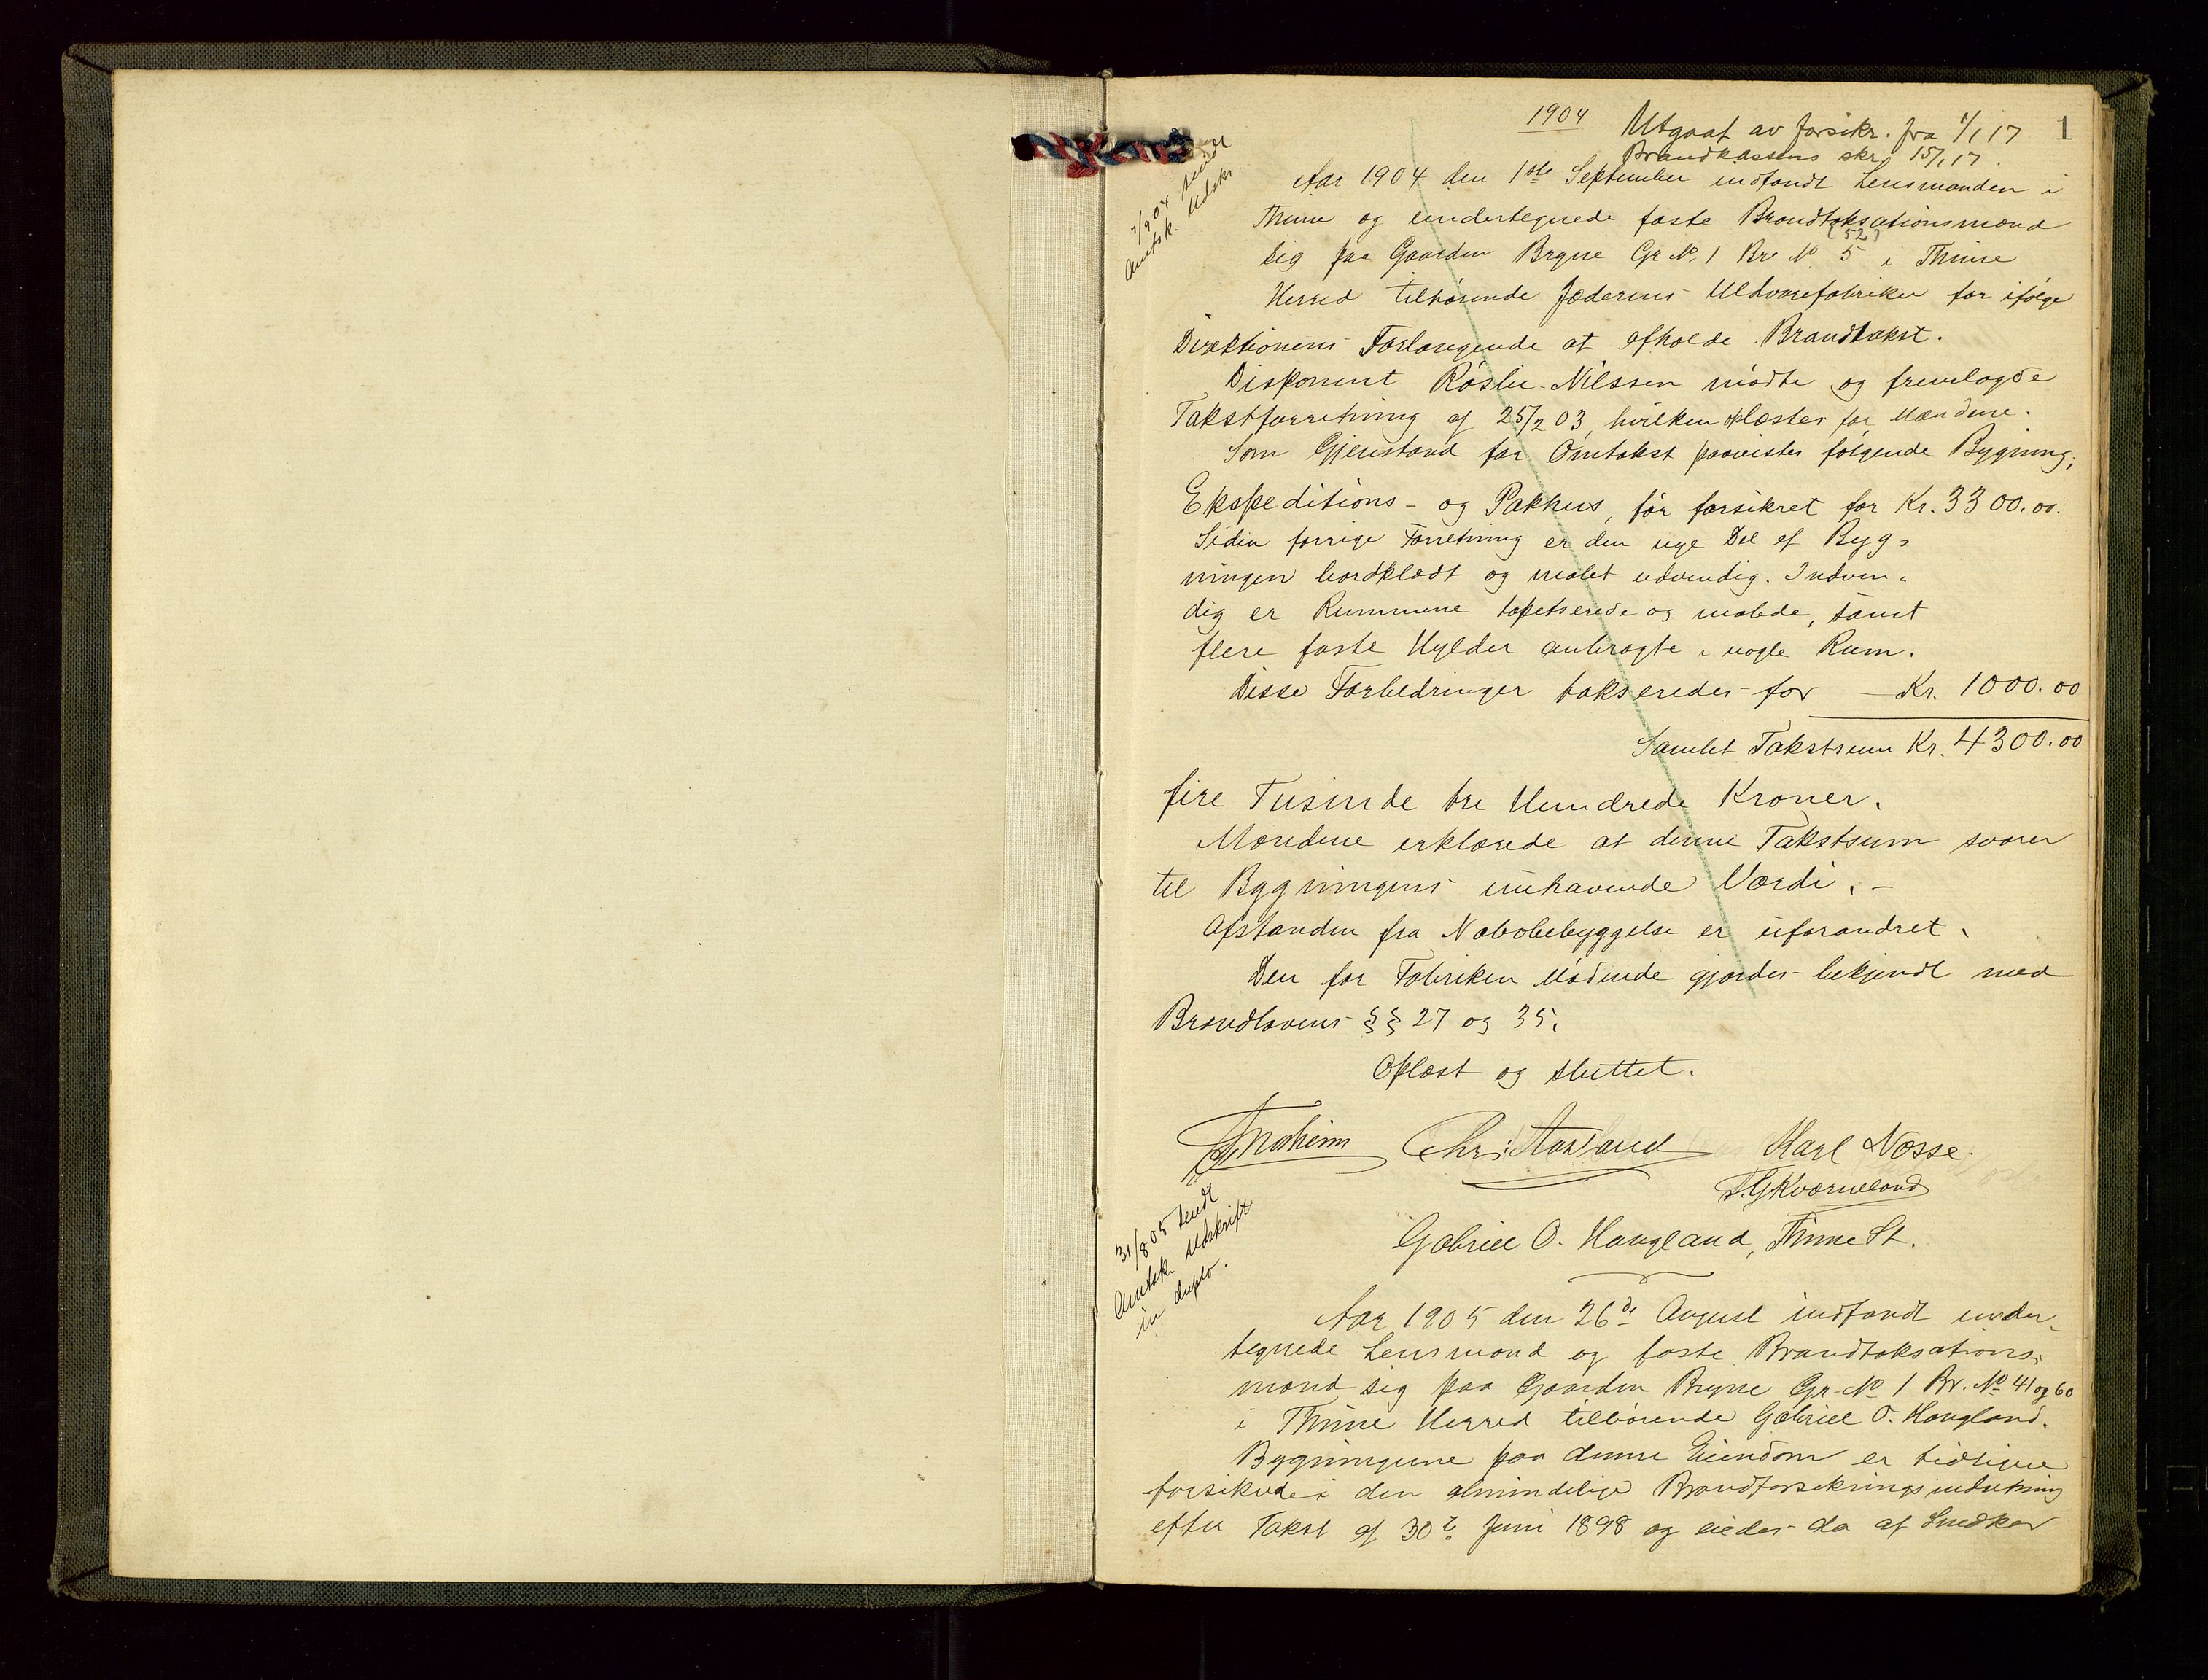 1904
Utgaat av forsikr. fra 1/1 17
1
Brandkassens skr. 15/1 17.
7/9 04 sendt
Amtsk. Udskr.
Aar 1904 den 1ste September indfandt Lensmanden i
Thime og undertegnede faste Brandtaksationsmænd
(52)
sig paa Gaarden Bryne Gr. No. 1 Br. No 5 i Thime
Herred tilhørende Jæderens Uldvarefabriker for ifølge
Direktionens Forlangende at afholde Brandtakst.
Disponent Røslie-Nilssen mødte og fremlagde
Takstforretning af 25/2 03, hvilken oplæstes for Mændene.
Som Gjenstand for Omtakst paavistes følgende Bygning;
Ekspeditions- og Pakhus, før forsikret for Kr. 3300.00.
Siden forrige Forretning er den nye Del af Byg-
ningen bordklædt og malet udvendig. Indven-
dig er Rummene tapetserede og malede, samt
flere faste Hylder anbragte i nogle Rum.
Disse Forbedringer takseredes for — Kr. 1000.00
Samlet Takstsum Kr. 4300.00
fire Tusinde tre Hundrede Kroner.
Mændene erklærede at denne Takstsum svarer
til Bygningens iboende Værdi. -
Afstanden fra Nabobebyggelse er uforandret.
Den for Fabriken Mødende gjordes bekjendt med
Brandlovens §§ 27 og 35.
Oplæst og sluttet.
Chr: Aarland Karl Næsse.
T. G. Kværneland
Gabriel O. Haugland, Thime St.
31/8 05 sendt
Amtsk. Udskrift
in duplo.
Aar 1905 den 26de August indfandt under-
tegnede Lensmand og faste Brandtaksations-
mænd sig paa Gaarden Bryne Gr. No 1 Br. No 41 og 60
i Thime Herred tilhørende Gabriel O. Haugland.
Bygningerne paa denne Eiendom er tidligere
forsikrede i den almindelige Brandforsikringsindretning
efter Takst af 30te Juni 1898 og eiedes da af Snedker